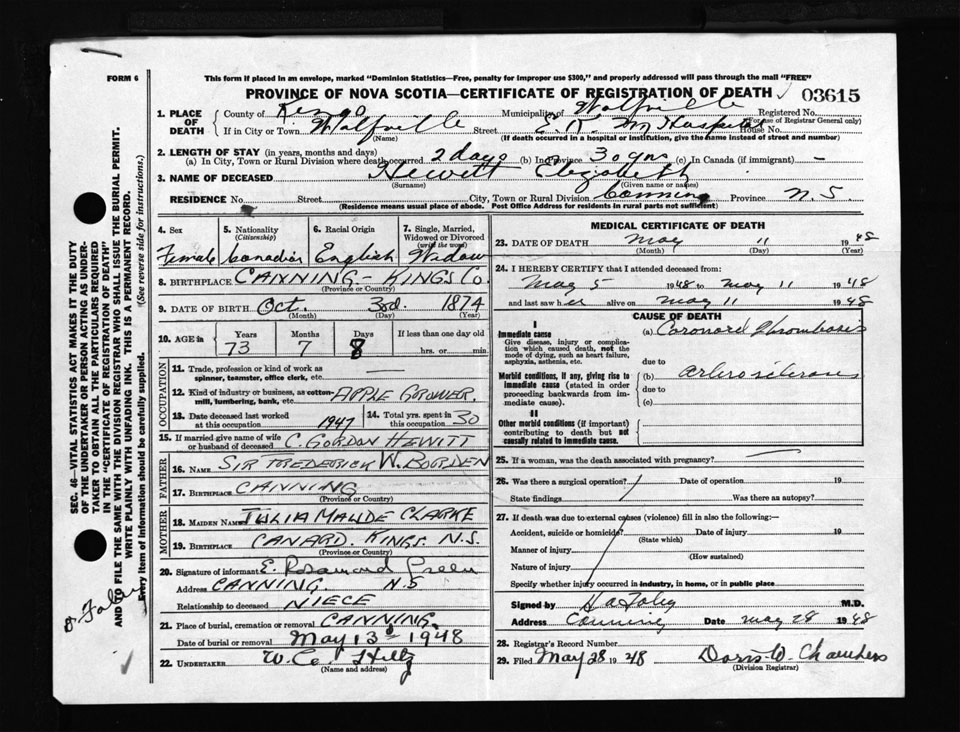 FORM 6
This form if placed in an envelope, marked "Dominion Statistics—Free, penalty for improper use $300," and properly addressed will pass through the mail "FREE"
PROVINCE OF NOVA SCOTIA—CERTIFICATE OF REGISTRATION OF DEATH 03615
1. PLACE OF DEATH County of Kings Municipality of Wolfville Registered No.
(For use of Registrar General only)
If in City or Town Wolfville Street E. K. M. Hospital House No.
(Name) (If death occurred in a hospital or institution, give the name instead of street and number)
2. LENGTH OF STAY (in years, months and days)
(a) In City, Town or Rural Division where death occurred 2 days (b) In Province 30 yrs (c) In Canada (if immigrant) —
3. NAME OF DECEASED Hewitt Elizabeth
(Surname) (Given name or names)
RESIDENCE No. Street City, Town or Rural Division Canning Province N. S.
(Residence means usual place of abode. Post Office Address for residents in rural parts not sufficient)
4. Sex Female
5. Nationality (Citizenship) Canadian
6. Racial Origin English
7. Single, Married, Widowed or Divorced (write the word) Widow
8. BIRTHPLACE CANNING – KINGS CO.
(Province or Country)
9. DATE OF BIRTH Oct. 3rd. 1874
(Month) (Day) (Year)
10. AGE in Years 73 Months 7 Days 8 If less than one day old hrs. or min.
OCCUPATION
11. Trade, profession or kind of work as spinner, teamster, office clerk, etc. —
12. Kind of industry or business, as cotton-mill, lumbering, bank, etc. APPLE GROWER.
13. Date deceased last worked at this occupation 1947
14. Total yrs. spent in this occupation 30
15. If married give name of wife or husband of deceased C. GORDON HEWITT
FATHER
16. NAME SIR FREDERICK W. BORDEN
17. BIRTHPLACE CANNING
(Province or Country)
MOTHER
18. MAIDEN NAME JULIA MAUDE CLARKE
19. BIRTHPLACE CANARD. KINGS. N.S.
(Province or Country)
20. Signature of informant E. Rosamond
Address CANNING. N.S
Relationship to deceased NIECE
21. Place of burial, cremation or removal CANNING.
Date of burial or removal May 13 1948
22. UNDERTAKER W. C. Hiltz
(Name and address)
MEDICAL CERTIFICATE OF DEATH
23. DATE OF DEATH May 11 1948
(Month) (Day) (Year)
24. I HEREBY CERTIFY that I attended deceased from:
May 5 1948 to May 11 1948
and last saw her alive on May 11 1948
CAUSE OF DEATH
I
Immediate cause
Give disease, injury or complication which caused death, not the mode of dying, such as heart failure, asphyxia, asthenia, etc.
(a) Coronard Thrombosis
due to
Morbid conditions, if any, giving rise to immediate cause (stated in order proceeding backwards from immediate cause).
(b)
due to
(c)
II
Other morbid conditions (if important) contributing to death but not causally related to immediate cause.
25. If a woman, was the death associated with pregnancy? —
26. Was there a surgical operation? Date of operation 19
State findings Was there an autopsy?
27. If death was due to external causes (violence) fill in also the following:—
Accident, suicide or homicide? Date of injury 19
(State which)
Manner of injury
(How sustained)
Nature of injury
Specify whether injury occurred in industry, in home, or in public place
Signed by M.D.
Address Canning Date May 28 1948
28. Registrar's Record Number
29. Filed May 28 1948 Doris W. Chambers
(Division Registrar)
SEC. 46—VITAL STATISTICS ACT MAKES IT THE DUTY
OF THE UNDERTAKER OR PERSON ACTING AS UNDER-
TAKER TO OBTAIN ALL THE PARTICULARS REQUIRED
IN THE "CERTIFICATE OF REGISTRATION OF DEATH"
AND TO FILE THE SAME WITH THE DIVISION REGISTRAR WHO SHALL ISSUE THE BURIAL PERMIT.
WRITE PLAINLY WITH UNFADING INK. THIS IS A PERMANENT RECORD.
Every item of information should be carefully supplied. (See reverse side for instructions.)